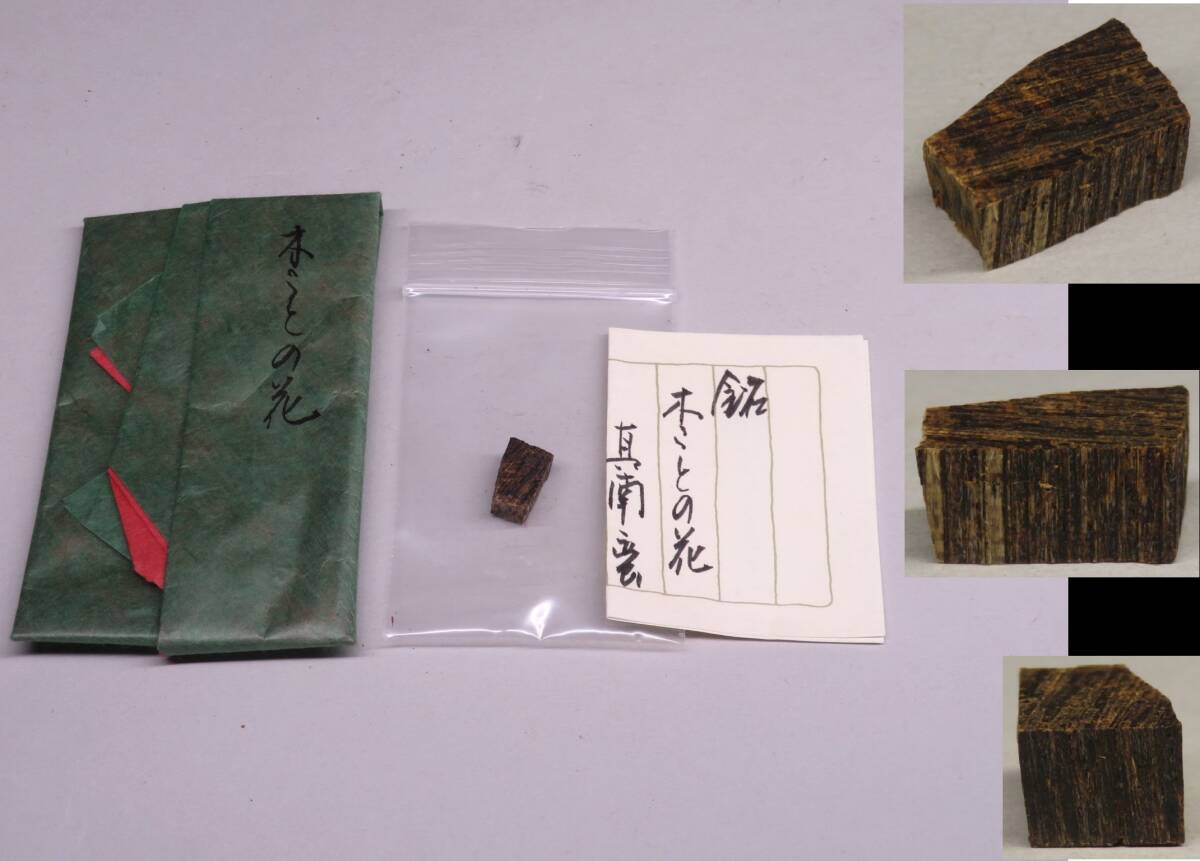 木ことの花
銘
木ことの花
真南蛮